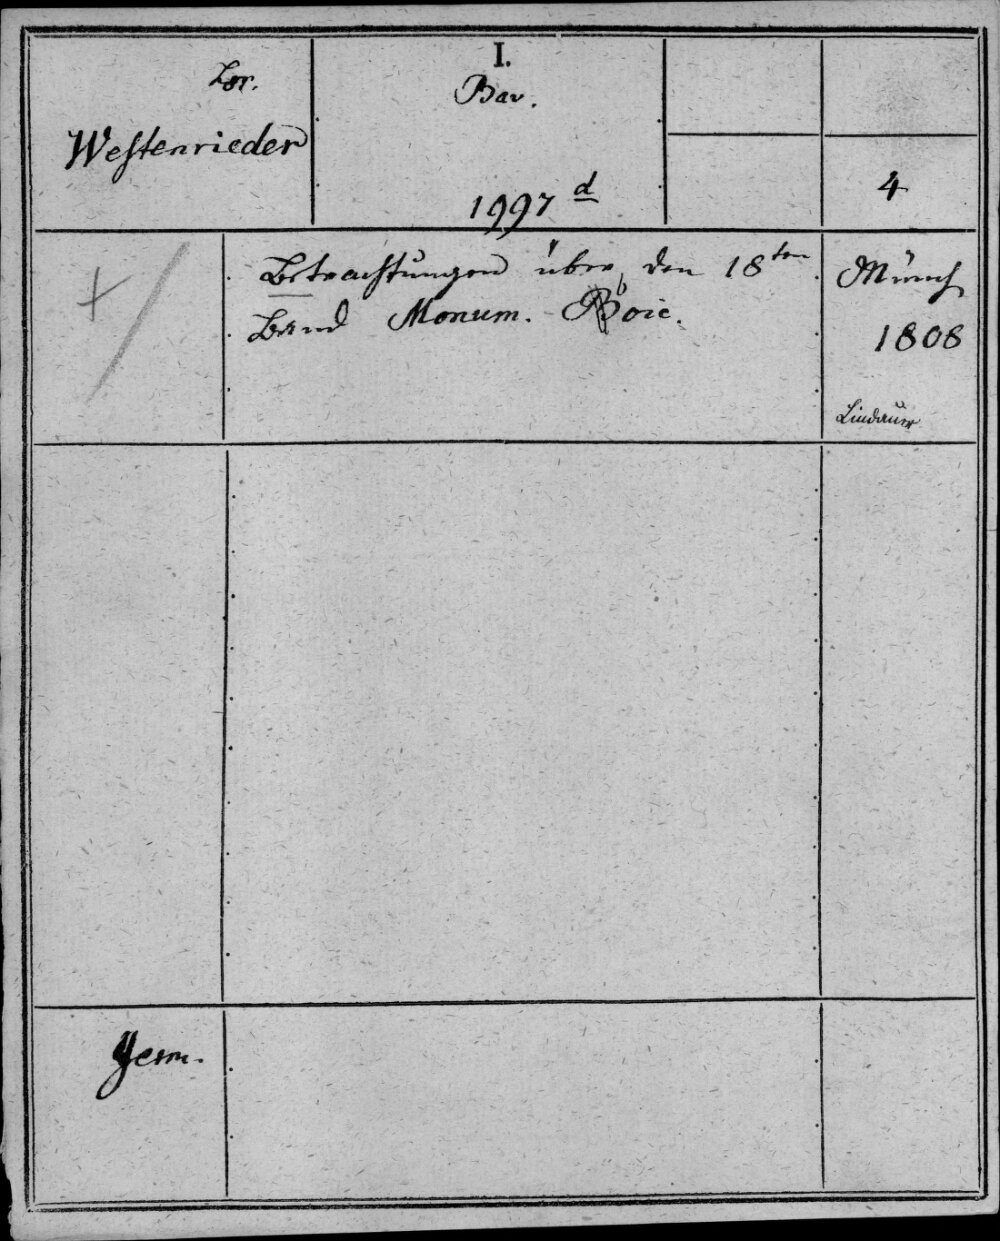 Lor.
Westenrieder
I.
Bav.
1997 d
4
Betrachtungen über den 18ten
Band Monum. Boic.
Münch
1808
Lindauer
Germ.